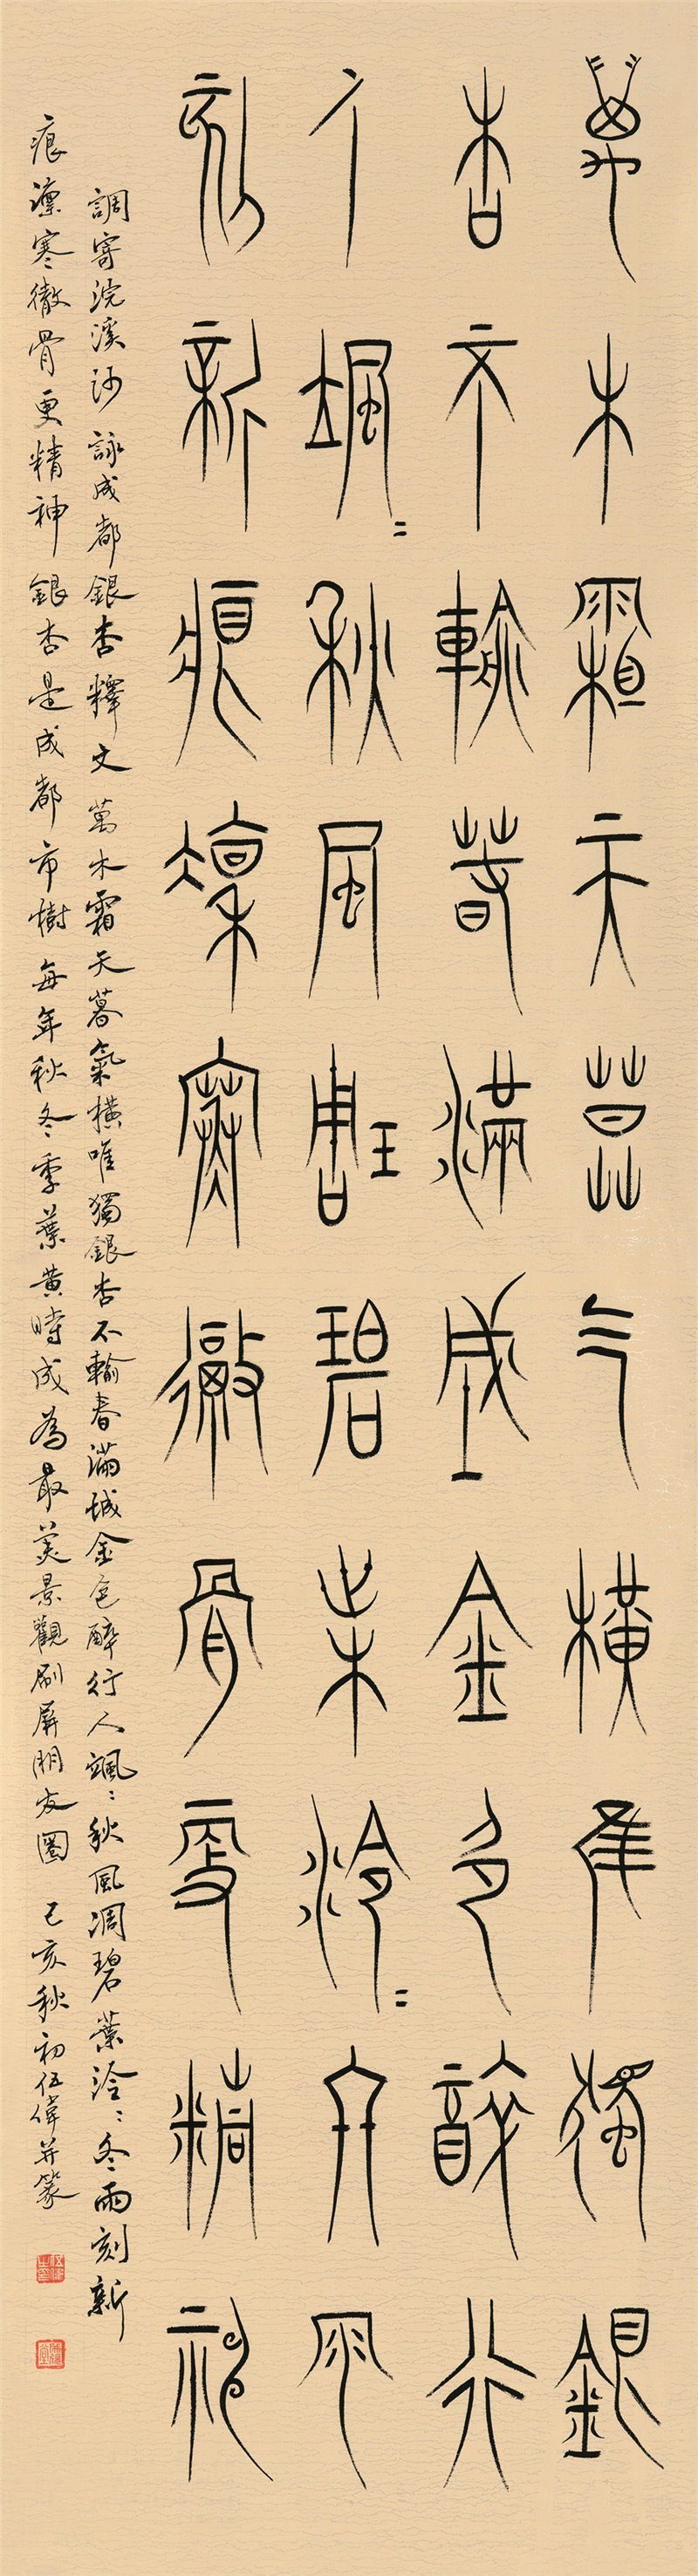 萬木霜天暮气橫唯獨銀
杏不輸春滿城金色醉行
人颯〻秋風凋碧葉泠〻冬雨
刻新痕凜寒徹骨更精神
調寄浣溪沙詠成都銀杏釋文萬木霜天暮氣橫唯獨銀杏不輸春滿城金色醉行人颯〻秋風凋碧葉泠〻冬雨刻新
痕凜寒徹骨更精神銀杏是成都市樹每年秋冬季葉黃時成為最美景觀刷屏朋友圈己亥秋初伍偉並篆